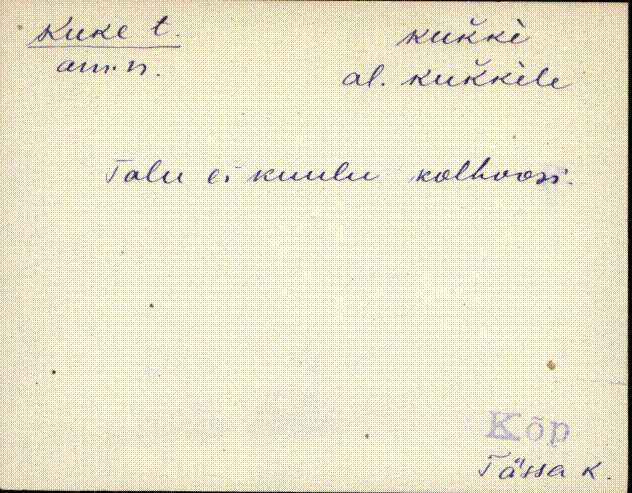 Kuke t. kuk̆kè
am.n. al. kuk̆kèle
Talu ei kuulu kolhoosi.
Kõp
Tässa k.